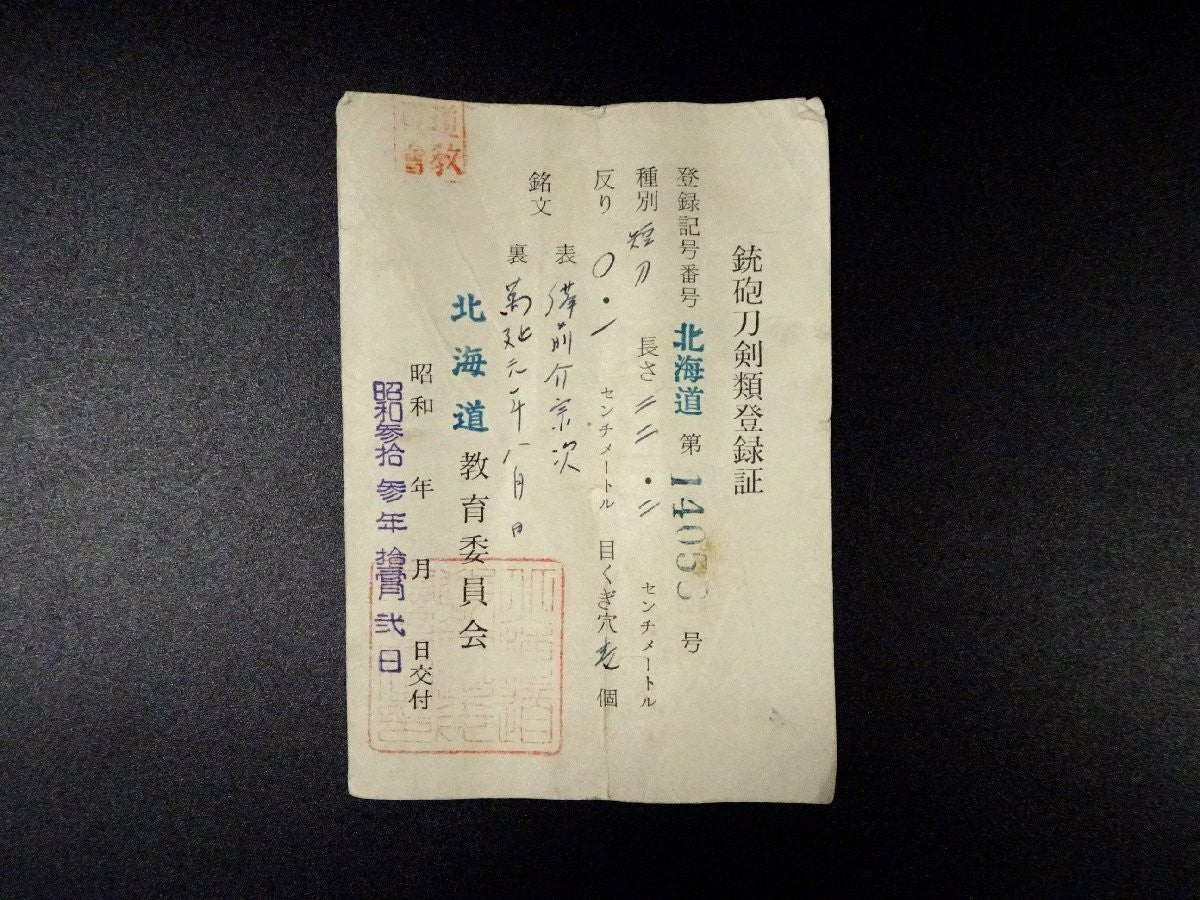 銃砲刀剣類登録証
登録記号番号 北海道 第 14053 号
種別 短刀 長さ 二二・二 センチメートル
反り 〇・一 センチメートル 目くぎ穴 壱 個
銘文
表 備前介宗次
裏 萬延元年八月日
北海道教育委員会
昭和 年 月 日交付
昭和参拾参年拾壹月弐日
道教